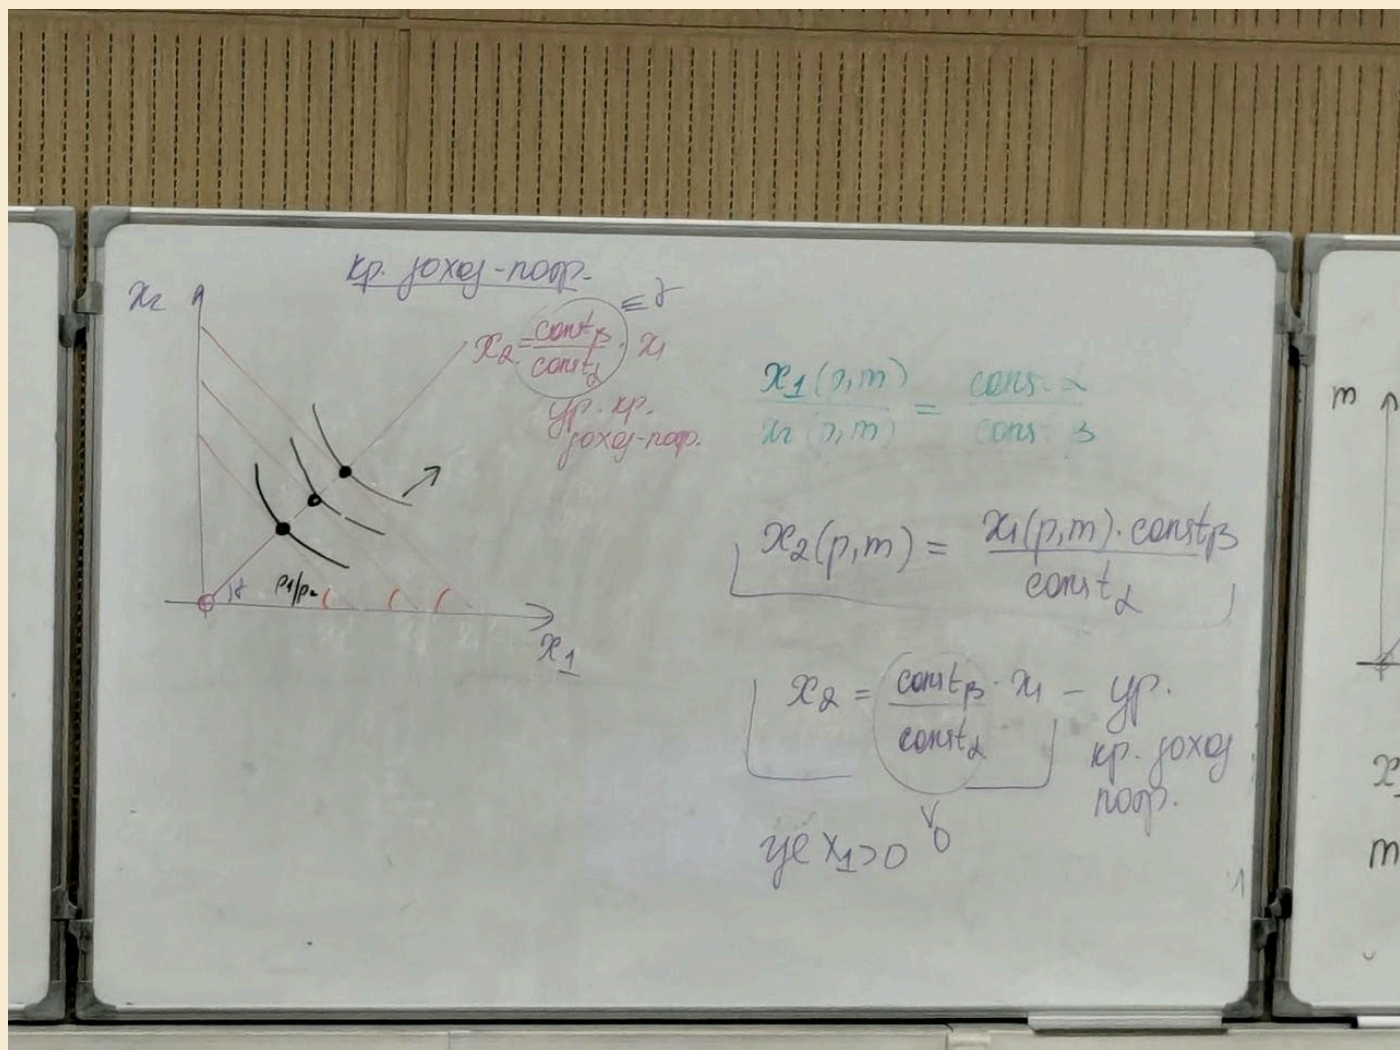 кр. доход-потр.
x₂
≡ γ
x₂ = const_β / const_α · x₁
ур. кр.
доход-потр.
p₁/p₂
γ
x₁
x₁(p,m) / x₂(p,m) = const α / const β
x₂(p,m) = x₁(p,m) · const_β / const_α
x₂ = const_β / const_α · x₁ – ур.
кр. доход
потр.
где x₁>0
0
m
x
m